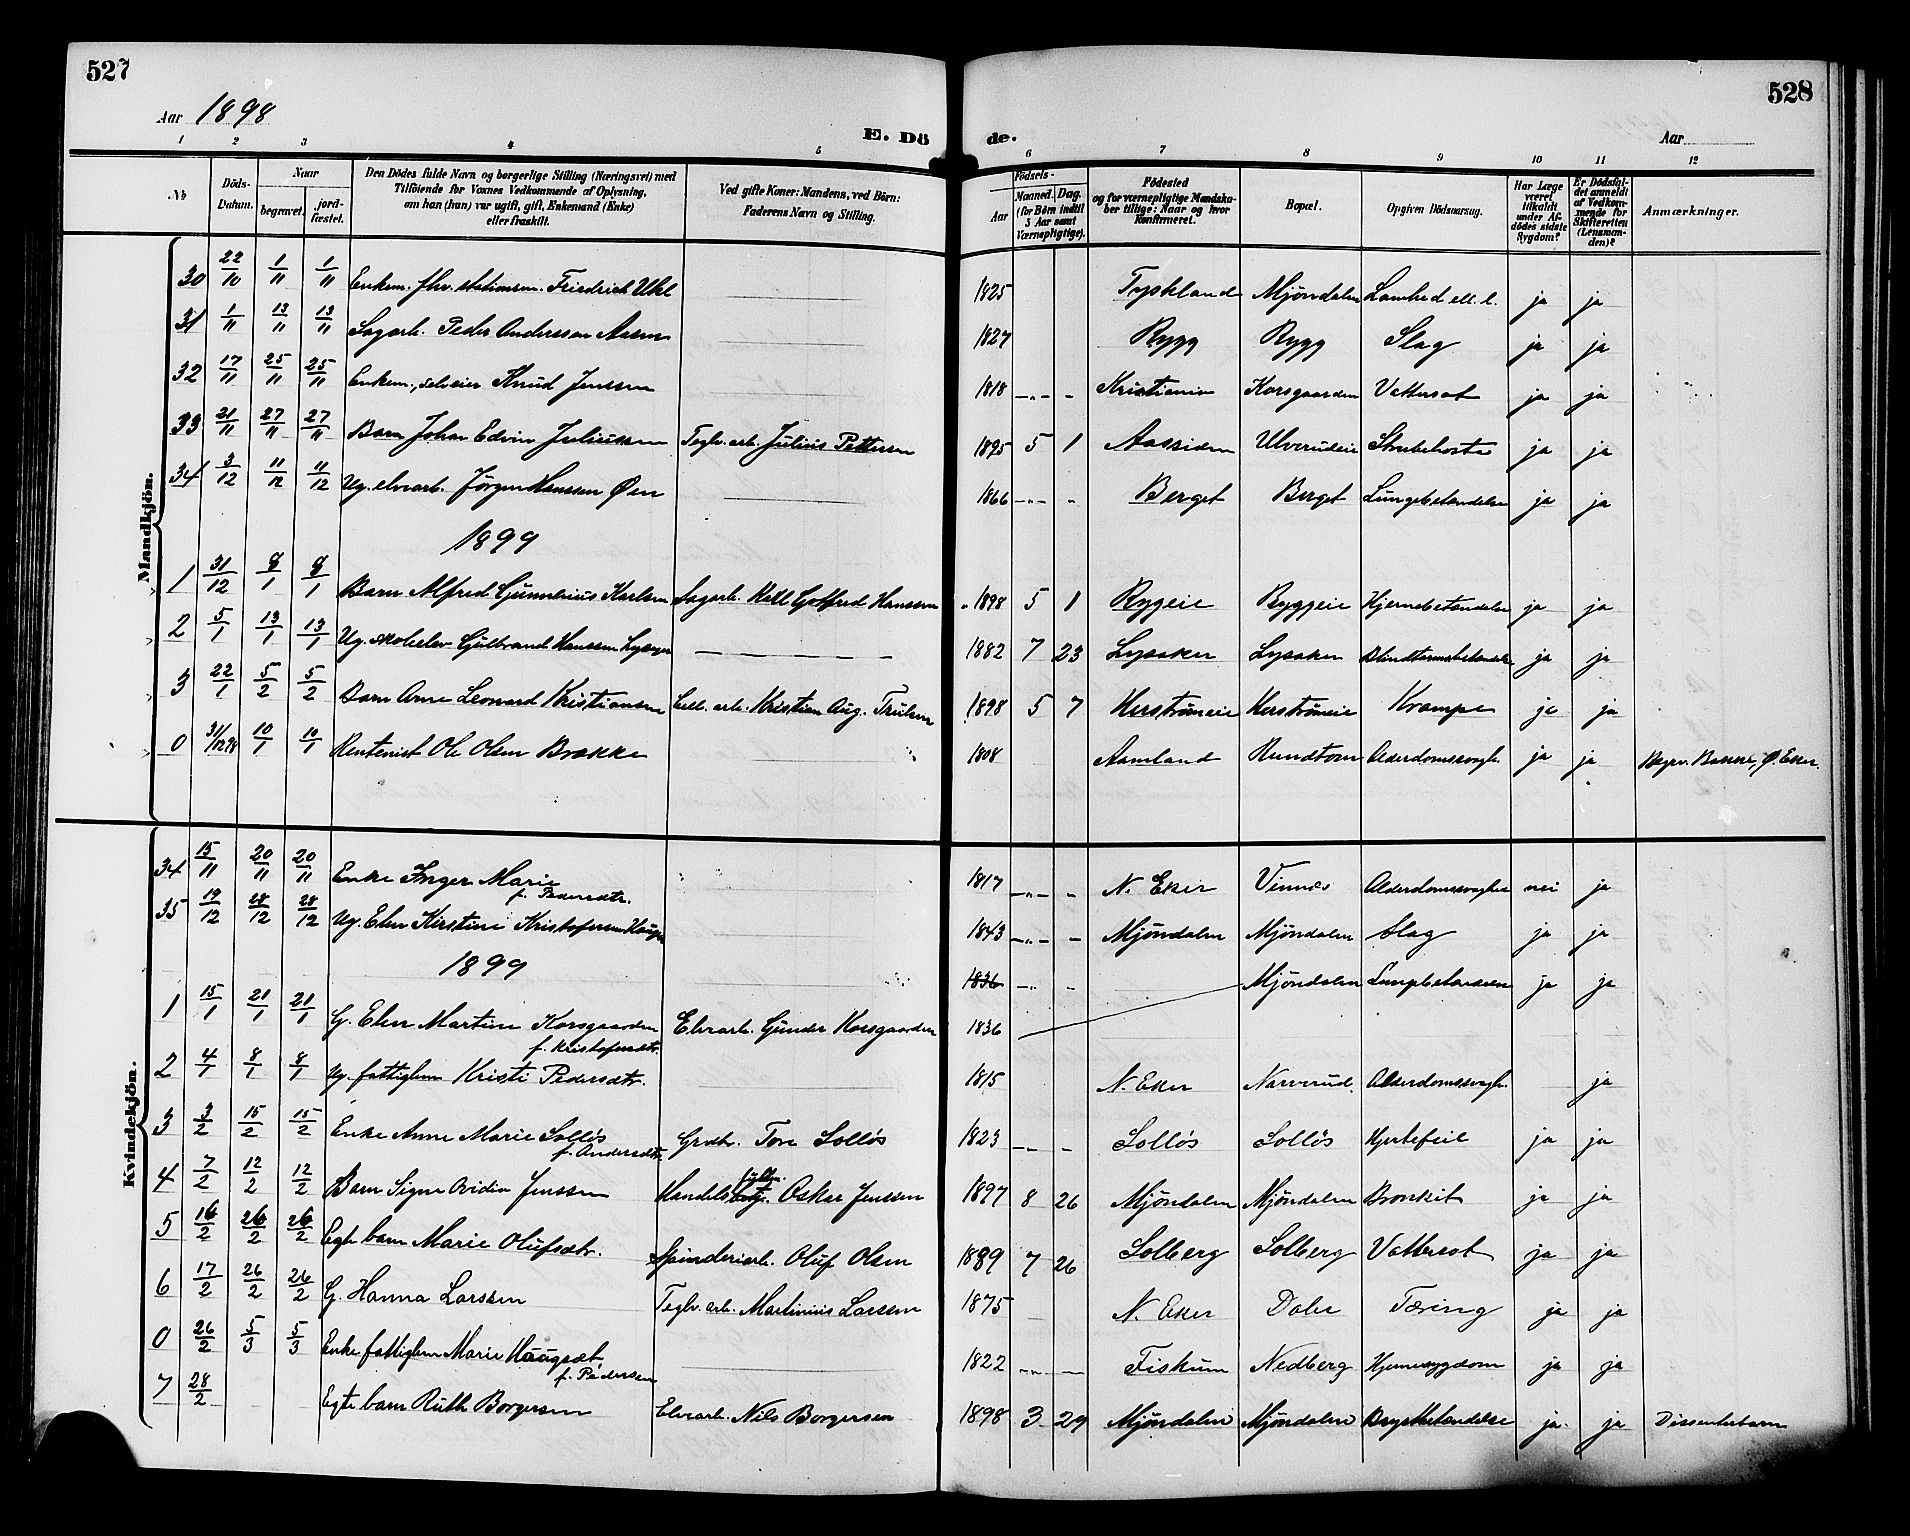 527
528
Aar 1898
Aar
E. Dö
de.
1 2 3 4 5 6 7 8 9 10 11 12
№
Döds-Datum.
Naar
begravet.
jord-fæstet.
Den Dödes fulde Navn og borgerlige Stilling (Næringsvei) med
Tilföiende for Voxnes Vedkommende af Oplysning,
om han (hun) var ugift, gift, Enkemand (Enke)
eller fraskilt.
Ved gifte Koner: Mandens, ved Börn:
Faderens Navn og Stilling.
Födsels-
Aar
Maaned. Dag.
(for Börn indtil 5 Aar samt Værnepligtige).
Födested
og for værnepligtige Mandskaber tillige: Naar og hvor Konfirmeret.
Bopæl.
Opgiven Dödsaarsag.
Har Læge været tilkaldt under Afdödes sidste Sygdom?
Er Dödsfaldet anmeldt af Vedkommende for Skifteretten (Lensmanden)?
Anmærkninger.
Mandkjön.
30 22/10 1/11 1/11 Enkem. fhv. stationsm. Friedrich Uhl 1825 Tyskland Mjöndalen Lamhed ell. l. ja ja
31 1/11 13/11 13/11 Sagarb. Peder Anderssen Aasen 1827 Rygg Rygg Slag ja ja
32 17/11 25/11 25/11 Enkem., selveier Knud Jenssen 1818 Kristiania Korsgaarden Vattersot ja ja
33 21/11 27/11 27/11 Barn Johan Edvin Juliussen Teglv. arb. Julius Pettersen 1895 5 1 Aassiden Ulverudeie Strubehoste ja ja
34 3/12 11/12 11/12 Ug. elvearb. Jörgen Hanssen Øen 1866 Berget Berget Lungebetændelse ja ja
1899
1 31/12 8/1 8/1 Barn Alfred Gunnerius Karlsen Sagarb. Karl Gotfred Hanssen 1898 5 1 Rygeie Ryggeie Hjernebetændelse ja ja
2 5/1 13/1 13/1 Ug. skoleelev Gulbrand Hanssen Lysaker 1882 7 23 Lysaker Lysaker Blindtarmsbetændelse ja ja
3 22/1 5/2 5/2 Barn Arne Leonard Kristiansen Cell. arb. Kristian Aug. Trulsen 1898 5 7 Herströmeie Herströmeie Krampe ja ja
0 31/12 98 10/1 10/1 Rentenist Ole Olsen Brække 1808 Aamland Rundtom Alderdomssvagh. ja ja Begrv. Bakke, Ø. Eker.
Kvindekjön.
34 15/11 20/11 20/11 Enke Inger Marie 1817 N. Eker Vinnæs Alderdomssvaghed nei ja
f. Pedersdtr.
35 19/12 28/12 28/12 Ug. Elen Kirstine Kristofersen Haugen 1843 Mjöndalen Mjöndalen Slag ja ja
1899
1836 Mjöndalen Lungebetændelse ja ja
1 15/1 21/1 21/1 G. Elen Martine Korsgaarden Elvearb. Gunder Korsgaarden 1836
f. Kristofersdtr.
2 4/1 8/1 8/1 Ug. fattiglem Kristi Pedersdtr. 1815 N. Eker Narverud. Alderdomssvagh. ja
3 3/2 15/2 15/2 Enke Anne Marie Solløs Grdbr. Tore Solløs 1823 Solløs Solløs Hjertefeil ja ja
f. Andersdtr.
4 7/2 12/2 12/2 Barn Signe Ovidia Jenssen Handels Oskar Jenssen 1897 8 26 Mjöndalen Mjöndalen Bronkit ja ja
5 16/2 26/2 26/2 Egte barn Marie Olufsdtr. Spinderiarb. Oluf Olsen 1889 7 26 Solberg Solberg Vattersot ja ja
6 17/2 26/2 26/2 G. Hanna Larssen Teglv. arb. Martinius Larssen 1875 N. Eker Daler Tæring ja ja
0 26/2 5/3 5/3 Enke fattiglem Marie Haugsæt 1822 Fiskum Nedberg Hjernesygdom ja ja
f. Pedersen
7 28/2 Egte barn Ruth Borgersen Elvearb. Nils Borgersen 1898 3 29 Mjöndalen Mjöndalen Brystbetændelse ja ja Dissenterbarn